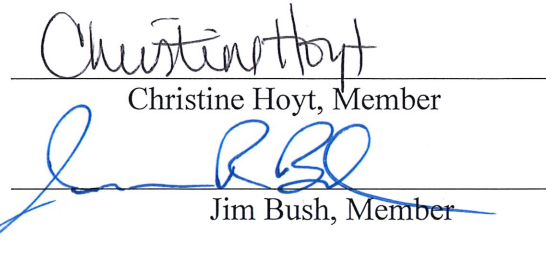 Christine Hoyt
Christine Hoyt, Member
Jim Bush, Member